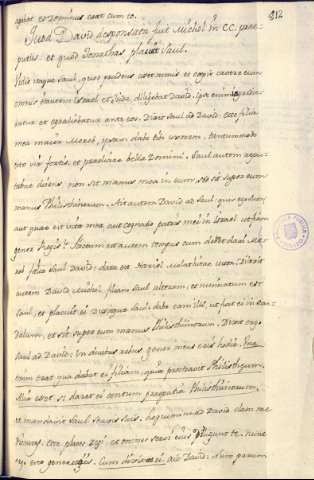 812
quia et Dominus erat cum eo.
Quod David desponsata fuit Michol in CC. prae-
putiis: et quod Jonathas placavit Saul.
Vidit itaque Saul, quod prudens esset nimis et cepit cavere eum
omnis autem Israel et Juda diligebat David. ipse enim ingredie-
batur et egrediebatur ante eos. Dixit Saul ad David. Ecce filia
mea maior Merob, ipsam dabo tibi uxorem. Tantummodo
esto vir fortis, et praeliare bella Domini. Saul autem repu-
tabat dicens. non sit manus mea in eum, sed sit super eum
manus Philisthinorum. Ait autem David ad Saul. quis ego sum,
aut quae est vita mea aut cognatio patris mei in Israel ut fiam
gener Regis? Factum est autem tempus cum deberet dari Me-
rob filia Saul David: data est Hadrieli Molathitae uxor. Dilexit
autem David Michol. filiam Saul alteram. et nuntiatum est
Saul, et placuit ei Dixitque Saul: dabo eam illi, ut fiat ei in scan-
dalum, et sit super eum manus Philisthinorum. Dixit ergo
Saul ad David. In duobus rebus gener meus eris hodie.
enim erat quod dabat ei filiam, quia probaverat Philistheum.
Alia erat si daret ei centum praeputia Philisthinorum.
et mandavit Saul servis suis. Loquimini ad David clam me
dicentes. Ecce places Regi et omnes servi eius diligunt te. nunc
ergo esto gener regis. Cum dixissent ei. ait David: Num parum